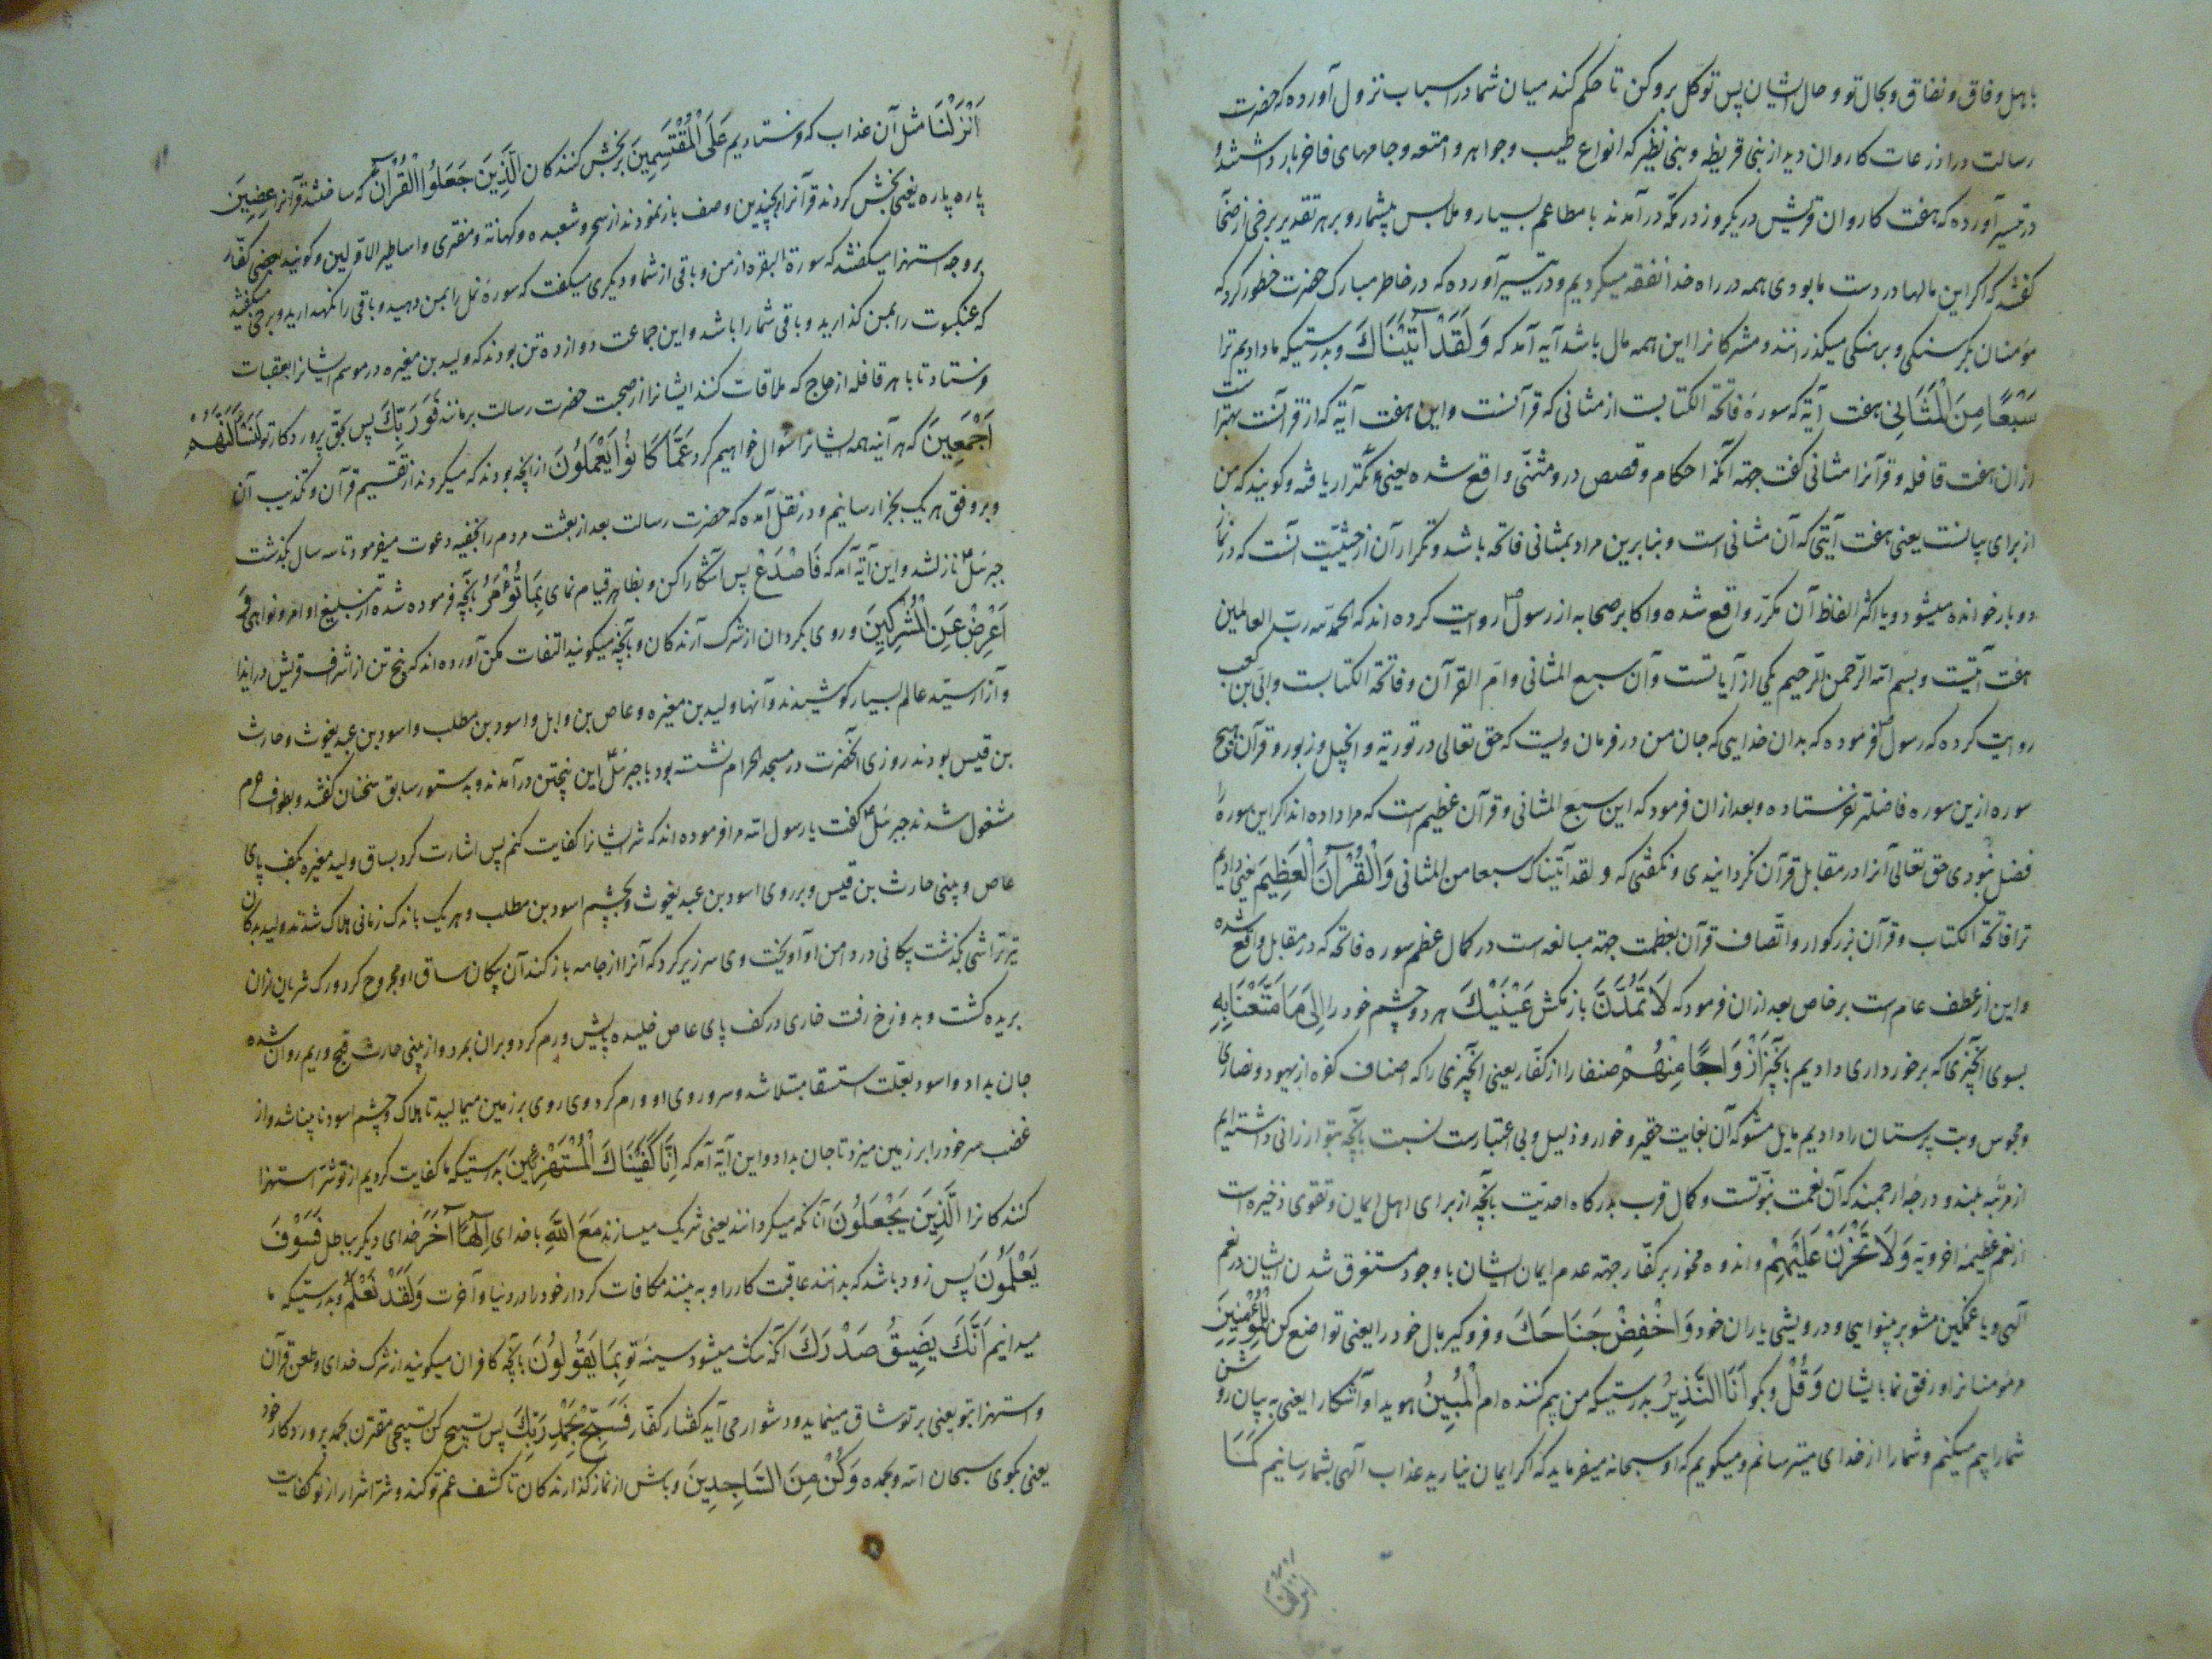 باهل وفاق و نفاق و بحال تو و حال ایشان پس توکل برو کن تا حکم کند میان شما در اسباب نزول آورده که حضرت
رسالت در اذرعات کاروان دید از بنی قریظه و بنی نظیر که انواع طیب و جواهر و امتعه و جامهای فاخر بار داشتند و
در تیسیر آورده که هفت کاروان قریش در یکروز در مکه درآمدند با مطاعم بسیار و ملابس بیشمار و بر هر تقدیر برخی از صحا
گفتند که اگر این مالها در دست ما بودی همه در راه خدا نفقه میکردیم و در تیسیر آورده که در خاطر مبارک حضرت خطور کرد که
مومنان بگرسنگی و برهنگی میگذرانند و مشرکانرا این همه مال باشد آیه آمد که وَلَقَدْ آتَيْنَاكَ و بدرستیکه ما دادیم ترا
سَبْعًا مِنَ الْمَثَانِي هفت آیه که سورهٔ فاتحة الکتابست از مثانی که قرآنست و این هفت آیه که از قرآنست بهتراست
ازان هفت قافله و قرآنرا مثانی گفت جهة آنکه احکام و قصص درو مثنی واقع شده یعنی مکرر ایراد یافته و گویند که من
از برای بیانست یعنی هفت آیتی که آن مثانی است و بنابرین مراد بمثانی فاتحه باشد و تکرار آن از حیثیت آنست که در نماز
دوبار خوانده میشود و یا اکثر الفاظ آن مکرر واقع شده و اکابر صحابه از رسول ص روایت کرده اند که الحمد لله رب العالمین
هفت آیتست و بسم الله الرحمن الرحیم یکی از آیاتست و آن سبع المثانی و ام القرآن و فاتحة الکتابست و ابی بن کعب
روایت کرده که رسول ص فرموده که بدان خدایی که جان من در فرمان ویست که حق تعالی در توریة و انجیل و زبور و قرآن هیچ
سوره ازین سوره فاضلتر نفرستاده و بعد ازان فرمود که این سبع المثانی و قرآن عظیم است که مرا داده اند اگر این سوره را
فضل نبودی حق تعالی آنرا در مقابل قرآن نگردانیدی و نگفتی که و لقد آتیناک سبعا من المثانی وَالْقُرْآنَ الْعَظِيمَ یعنی دادیم
ترا فاتحة الکتاب و قرآن بزرگوار و اتصاف قرآن بعظمت جهة مبالغه است در کمال عظم سوره فاتحه که در مقابل واقع شده
و این از عطف عام است بر خاص بعد ازان فرمود که لَا تَمُدَّنَّ باز مکش عَيْنَيْكَ هر دو چشم خود را إِلَىٰ مَا مَتَّعْنَا بِهِ
بسوی آنچیزی که برخورداری دادیم بآنچیز أَزْوَاجًا مِنْهُمْ صنفها را از کفار یعنی آنچیزی را که اصناف کفره از یهود و نصاری
و مجوس و بت پرستان را دادیم مایل مشو که آن بغایت حقیر و خوار و ذلیل و بی اعتبارست نسبت بآنچه بتو ارزانی داشته ایم
از مرتبهٔ بلند و درجهٔ ارجمند که آن نعمت نبوتست و کمال قرب بدرگاه احدیت بآنچه از برای اهل ایمان و تقوی ذخیره است
از نعم عظیمهٔ اخرویه وَلَا تَحْزَنْ عَلَيْهِمْ و اندوه مخور بر کفار جهة عدم ایمان ایشان با وجود مستغرق شدن ایشان در نعم
آلهی و یا غمگین مشو بر بینوایی و درویشی یاران خود وَاخْفِضْ جَنَاحَكَ و فروگیر بال خود را یعنی تواضع کن لِلْمُؤْمِنِينَ
مر مومنانرا و رفق نما بایشان وَقُلْ و بگو أَنَا النَّذِيرُ بدرستیکه من بیم کننده ام الْمُبِينُ هویدا و آشکارا یعنی به بیان روشن
شما را بیم میکنم و شما را از خدای میترسانم و میگویم که او سبحانه میفرماید که اگر ایمان نیارید عذاب آلهی بشما رسانیم كَمَا
انزلنا
أَنْزَلْنَا مثل آن عذاب که فرستادیم عَلَى الْمُقْتَسِمِينَ بر بخش کنندگان الَّذِينَ جَعَلُوا الْقُرْآنَ آنانکه ساختند قرآنرا عِضِينَ
پاره پاره یعنی بخش کردند قرآنرا و بچندین وصف باز نمودند از سحر و شعبده و کهانة و مفتری و اساطیر الاولین و گویند بعضی کفار
بر وجه استهزا میگفتند که سورة البقره از من و باقی از شما و دیگری میگفت که سورهٔ نمل را بمن دهید و باقی را نگهدارید و برخی میگفتند
که عنکبوت را بمن گذارید و باقی شما را باشد و این جماعت دوازده تن بودند که ولید بن مغیره در موسم ایشانرا بعقبات
فرستاد تا با هر قافله از حاج که ملاقات کنند ایشانرا از صحبت حضرت رسالت برمانند فَوَرَبِّكَ پس بحق پروردگار تو لَنَسْأَلَنَّهُمْ
أَجْمَعِينَ که هر آینه همه ایشانرا سوال خواهیم کرد عَمَّا كَانُوا يَعْمَلُونَ از آنچه بودند که میکردند از تقسیم قرآن و تکذیب آن
و بر وفق هر یک بجزا رسانیم و در نقل آمده که حضرت رسالت بعد از بعثت مردم را بخفیه دعوت میفرمود تا سه سال بگذشت
جبرئیل ع نازلشد و این آیه آمد که فَاصْدَعْ پس آشکارا کن و بظاهر قیام نمای بِمَا تُؤْمَرُ بآنچه فرموده شدهٔ از تبلیغ اوامر و نواهی وَ
أَعْرِضْ عَنِ الْمُشْرِكِينَ و روی بگردان از شرک آرندگان و بآنچه میگویند التفات مکن آورده اند که پنج تن از اشراف قریش در ایذا
و آزار سید عالم بسیار کوشیدند و آنها ولید بن مغیره و عاص بن وایل و اسود بن مطلب و اسود بن عبد یغوث و حارث
بن قیس بودند روزی آنحضرت در مسجد الحرام نشسته بود با جبرئیل ع این پنجتن درآمدند و بدستور سابق سخنان گفتند و بطواف حرم
مشغول شدند جبرئیل ع گفت یا رسول الله مرا فرموده اند که شر ایشانرا کفایت کنم پس اشارت کرد بساق ولید مغیره بکف پای
عاص و بینی حارث بن قیس و بر روی اسود بن عبد یغوث و بچشم اسود بن مطلب و هر یک باندک زمانی هلاک شدند ولید بدکان
تیرتراشی بگذشت پیکانی در دامن او آویخت وی سر زیر کرد که آنرا از جامه باز کند آن پیکان ساق او مجروح کرد و رگ شریان ازان
بریده گشت و بدوزخ رفت خاری در کف پای عاص خلیده پایش ورم کرد و بران بمرد و از بینی حارث قیح و ریم روان شده
جان بداد و اسود بعلت استسقا مبتلا شد و سر و روی او ورم کرد وی روی بر زمین میمالید تا هلاک و چشم اسود نابینا شد و از
غضب سر خود را بر زمین میزد تا جان بداد و این آیه آمد که إِنَّا كَفَيْنَاكَ الْمُسْتَهْزِئِينَ بدرستیکه ما کفایت کردیم از تو شر استهزا
کنندگانرا الَّذِينَ يَجْعَلُونَ آنانکه میگردانند یعنی شریک میسازند مَعَ اللَّهِ با خدای إِلَٰهًا آخَرَ خدای دیگر بباطل فَسَوْفَ
يَعْلَمُونَ پس زود باشد که بدانند عاقبت کار را و به بینند مکافات کردار خود را در دنیا و آخرت وَلَقَدْ نَعْلَمُ و بدرستیکه ما
میدانیم أَنَّكَ يَضِيقُ صَدْرُكَ آنکه تنگ میشود سینهٔ تو بِمَا يَقُولُونَ بآنچه کافران میگویند از شرک خدای و طعن قرآن
و استهزا بتو یعنی بر تو شاق مینماید و دشوار می آید گفتار کفار فَسَبِّحْ بِحَمْدِ رَبِّكَ پس تسبیح کن تسبیحی مقترن بحمد پروردگار خود
یعنی بگوی سبحان الله و بحمده وَكُنْ مِنَ السَّاجِدِينَ و باش از نماز گذارندگان تا کشف غم تو کند و شر اشرار از تو کفایت